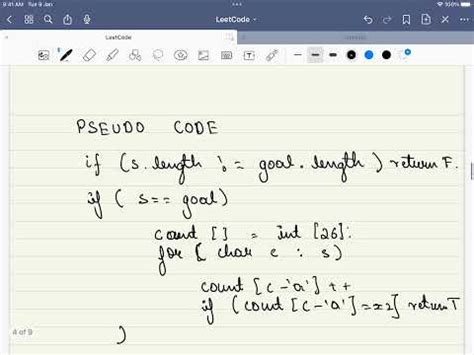 9:41 AM Tue 9 Jan
100%
LeetCode
LeetCode
PSEUDO CODE
if (s.length != goal.length) return F.
if ( s== goal)
count [] = int [26]:
for( char c : s)
count [c-'a'] ++
if (count [c-'a'] ==2] return T
)
4 of 9